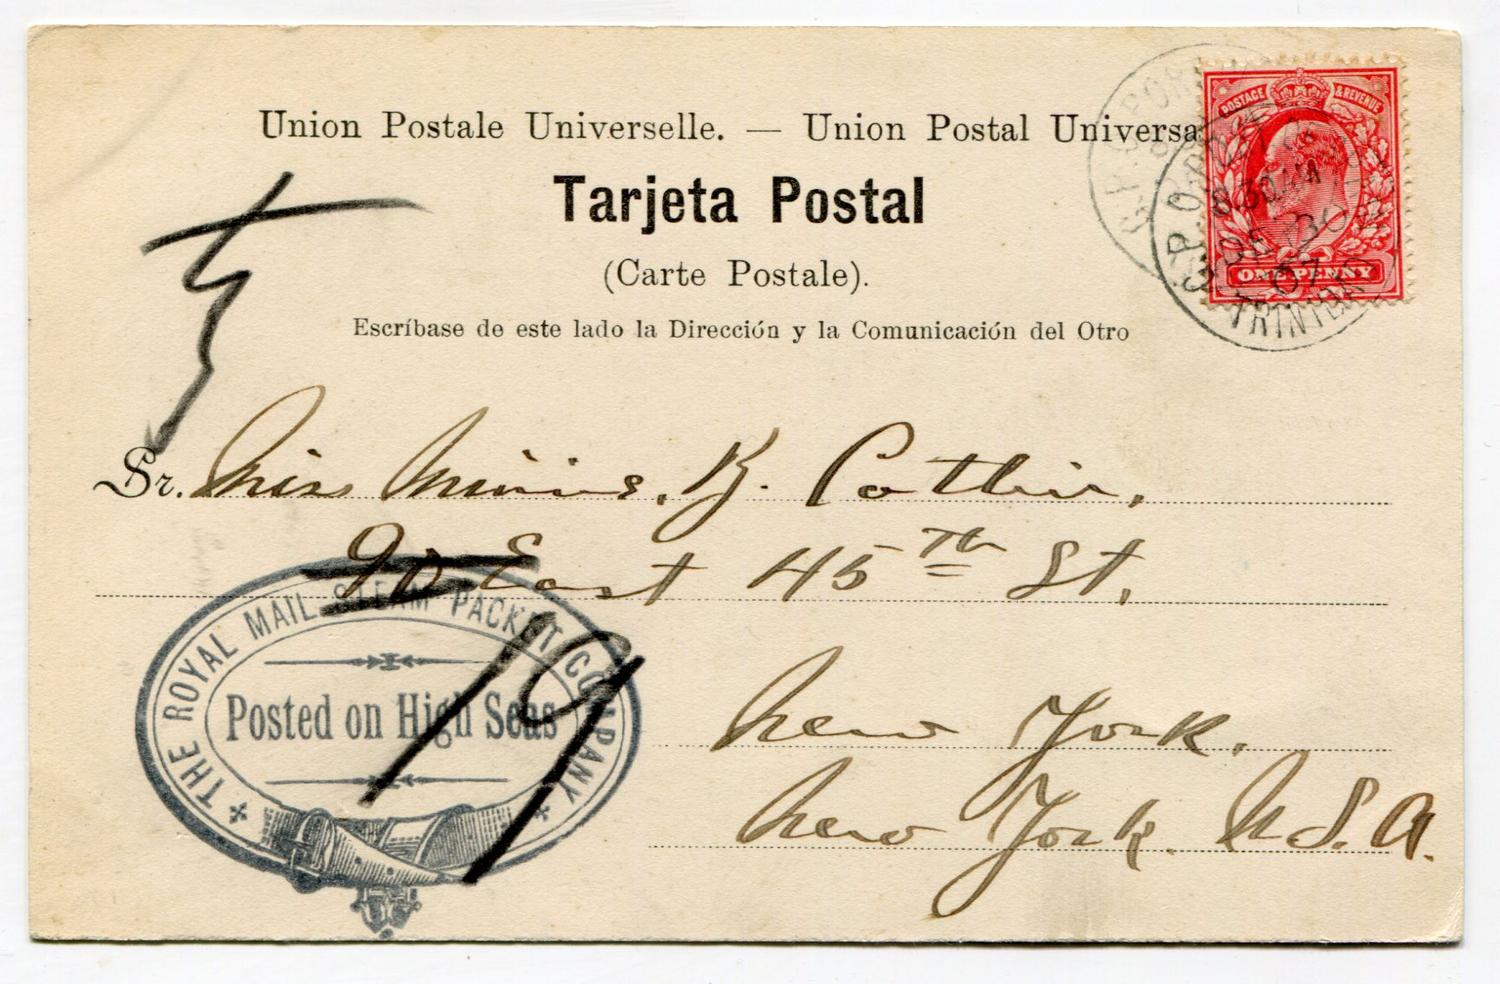 Union Postale Universelle. — Union Postal Universa
Tarjeta Postal
(Carte Postale).
Escríbase de este lado la Dirección y la Comunicación del Otro
POSTAGE & REVENUE
ONE PENNY
G.P.O. PORT
8.30 AM
DE 30
07
TRINIDAD
Sr. Miss Minnie. K. Catlin,
90 East 45th St,
19
New York.
New York. U.S.A.
THE ROYAL MAIL STEAM PACKET COMPANY
Posted on High Seas